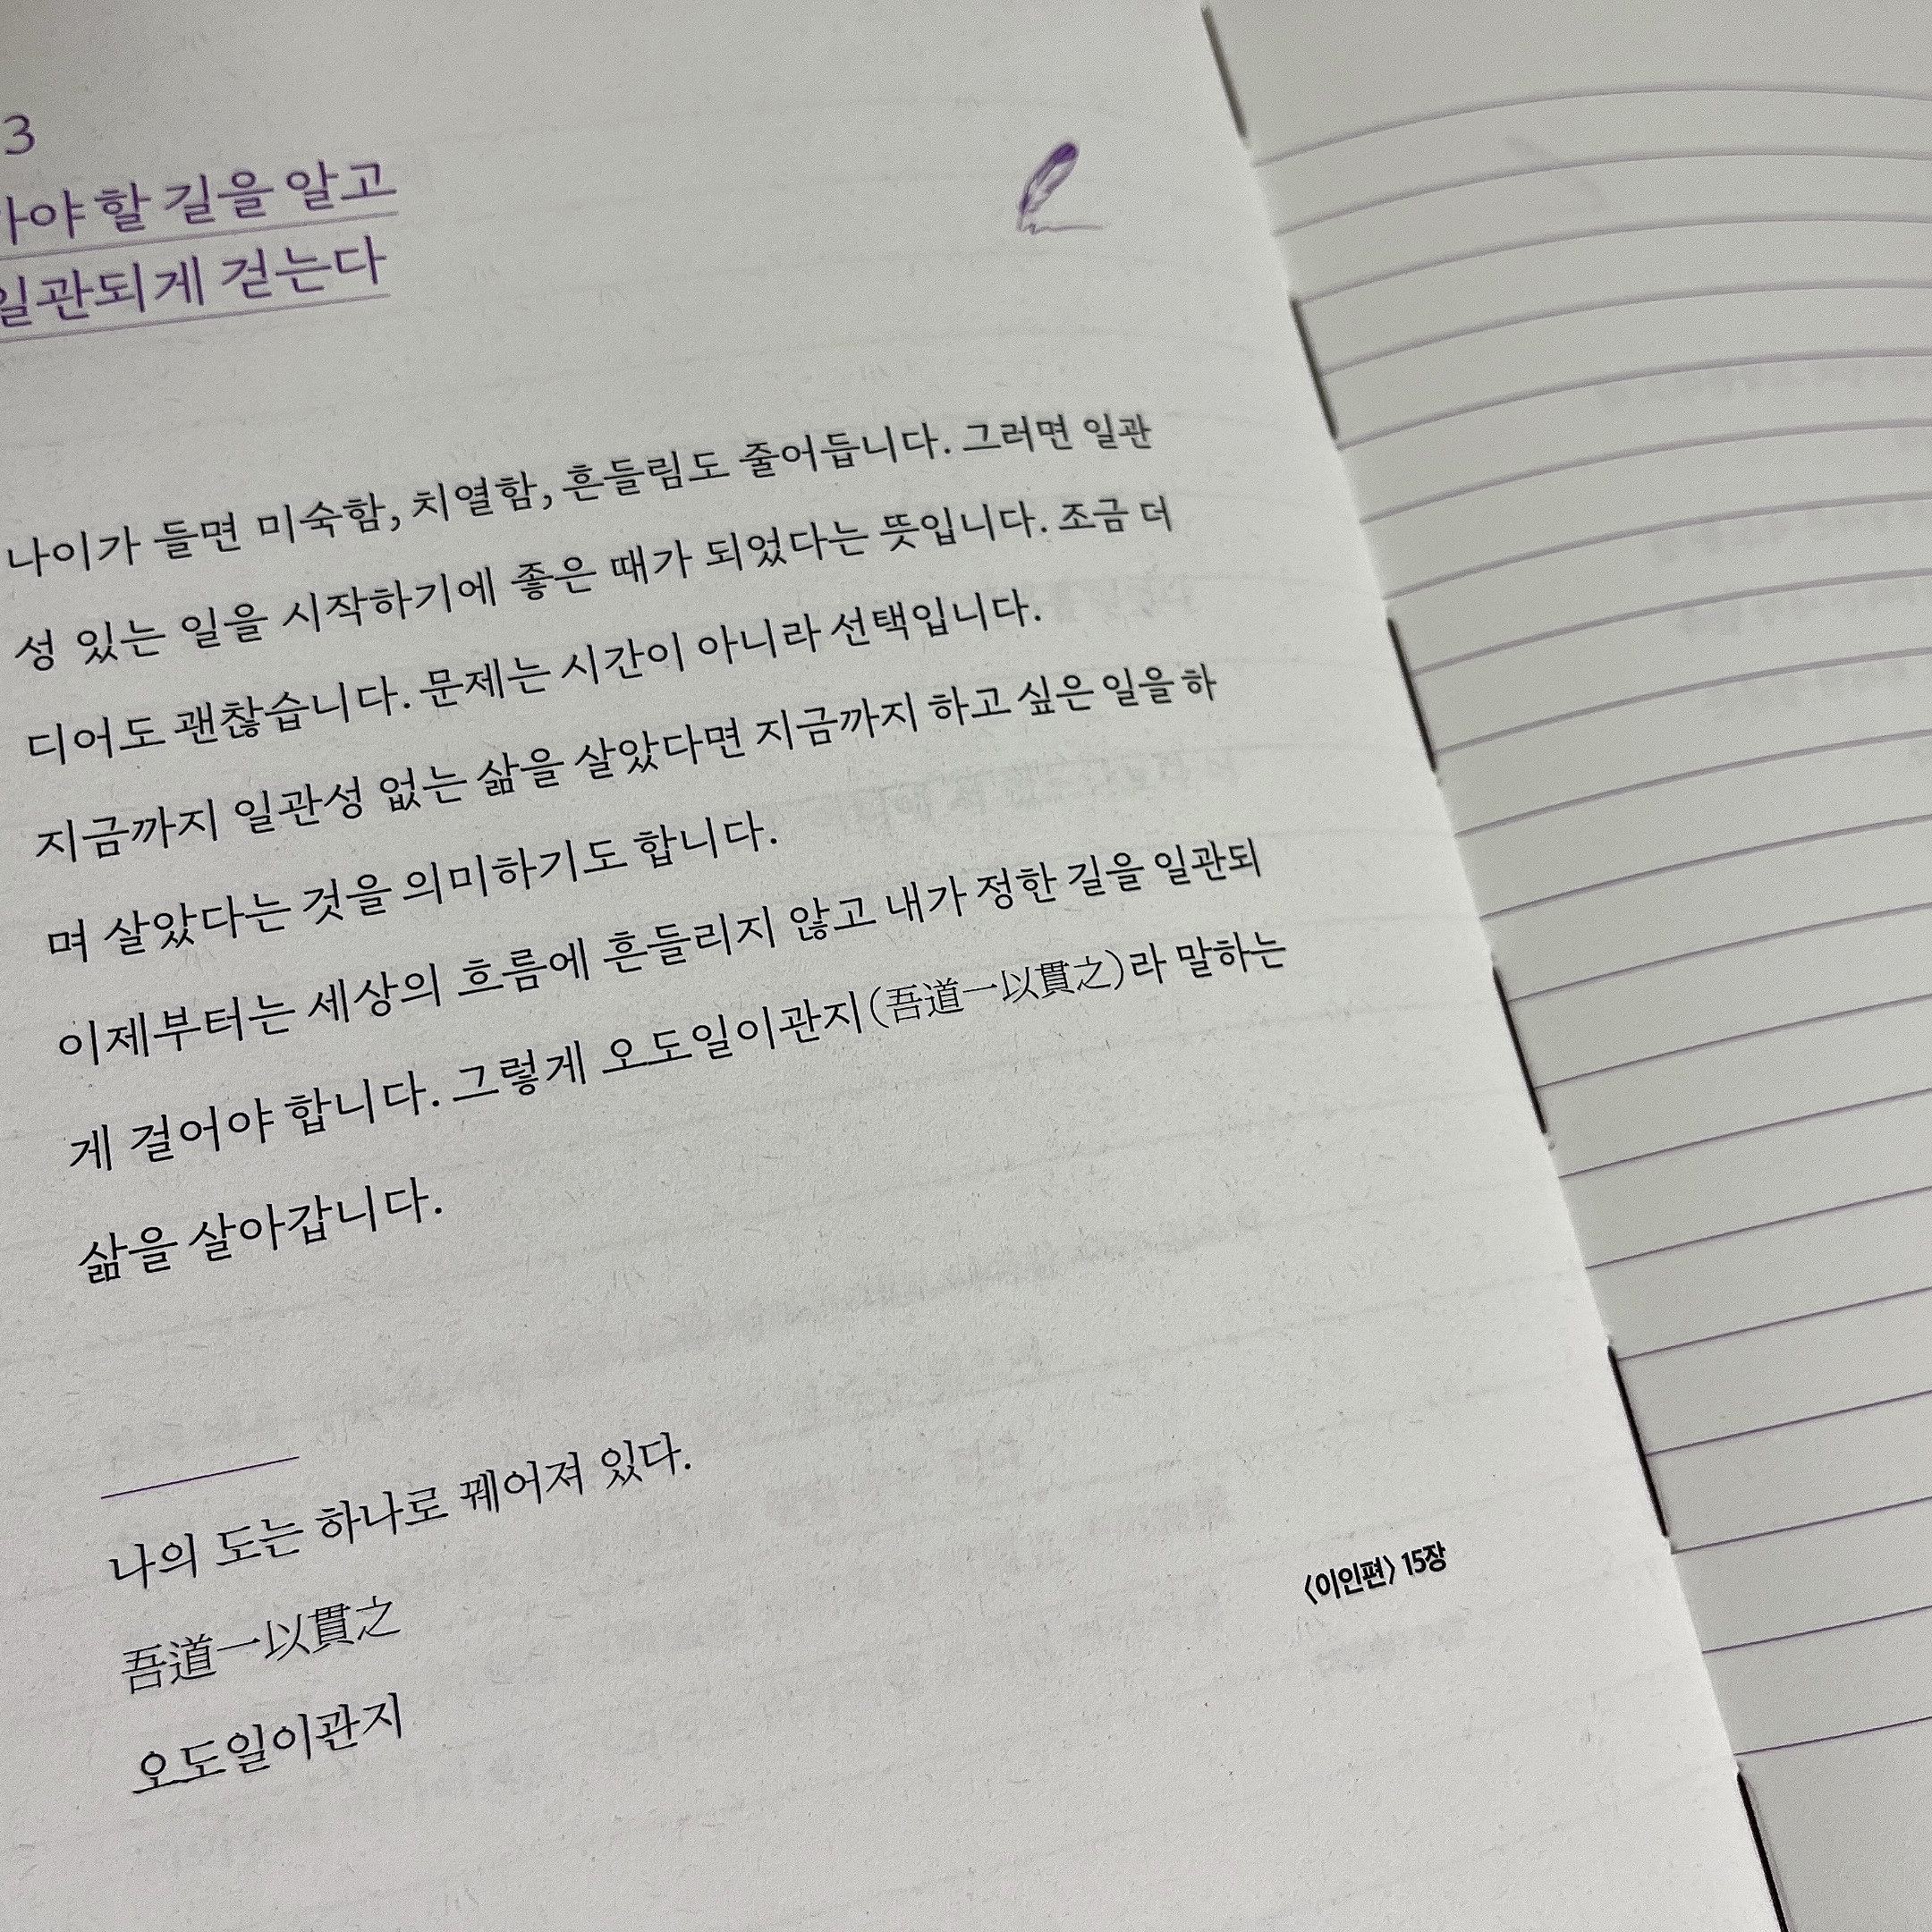 3
야 할 길을 알고
일관되게 걷는다
나이가 들면 미숙함, 치열함, 흔들림도 줄어듭니다. 그러면 일관
성 있는 일을 시작하기에 좋은 때가 되었다는 뜻입니다. 조금 더
디어도 괜찮습니다. 문제는 시간이 아니라 선택입니다.
지금까지 일관성 없는 삶을 살았다면 지금까지 하고 싶은 일을 하
며 살았다는 것을 의미하기도 합니다.
이제부터는 세상의 흐름에 흔들리지 않고 내가 정한 길을 일관되
게 걸어야 합니다. 그렇게 오도일이관지(吾道一以貫之)라 말하는
삶을 살아갑니다.
나의 도는 하나로 꿰어져 있다.
吾道一以貫之
오도일이관지
〈이인편〉 15장